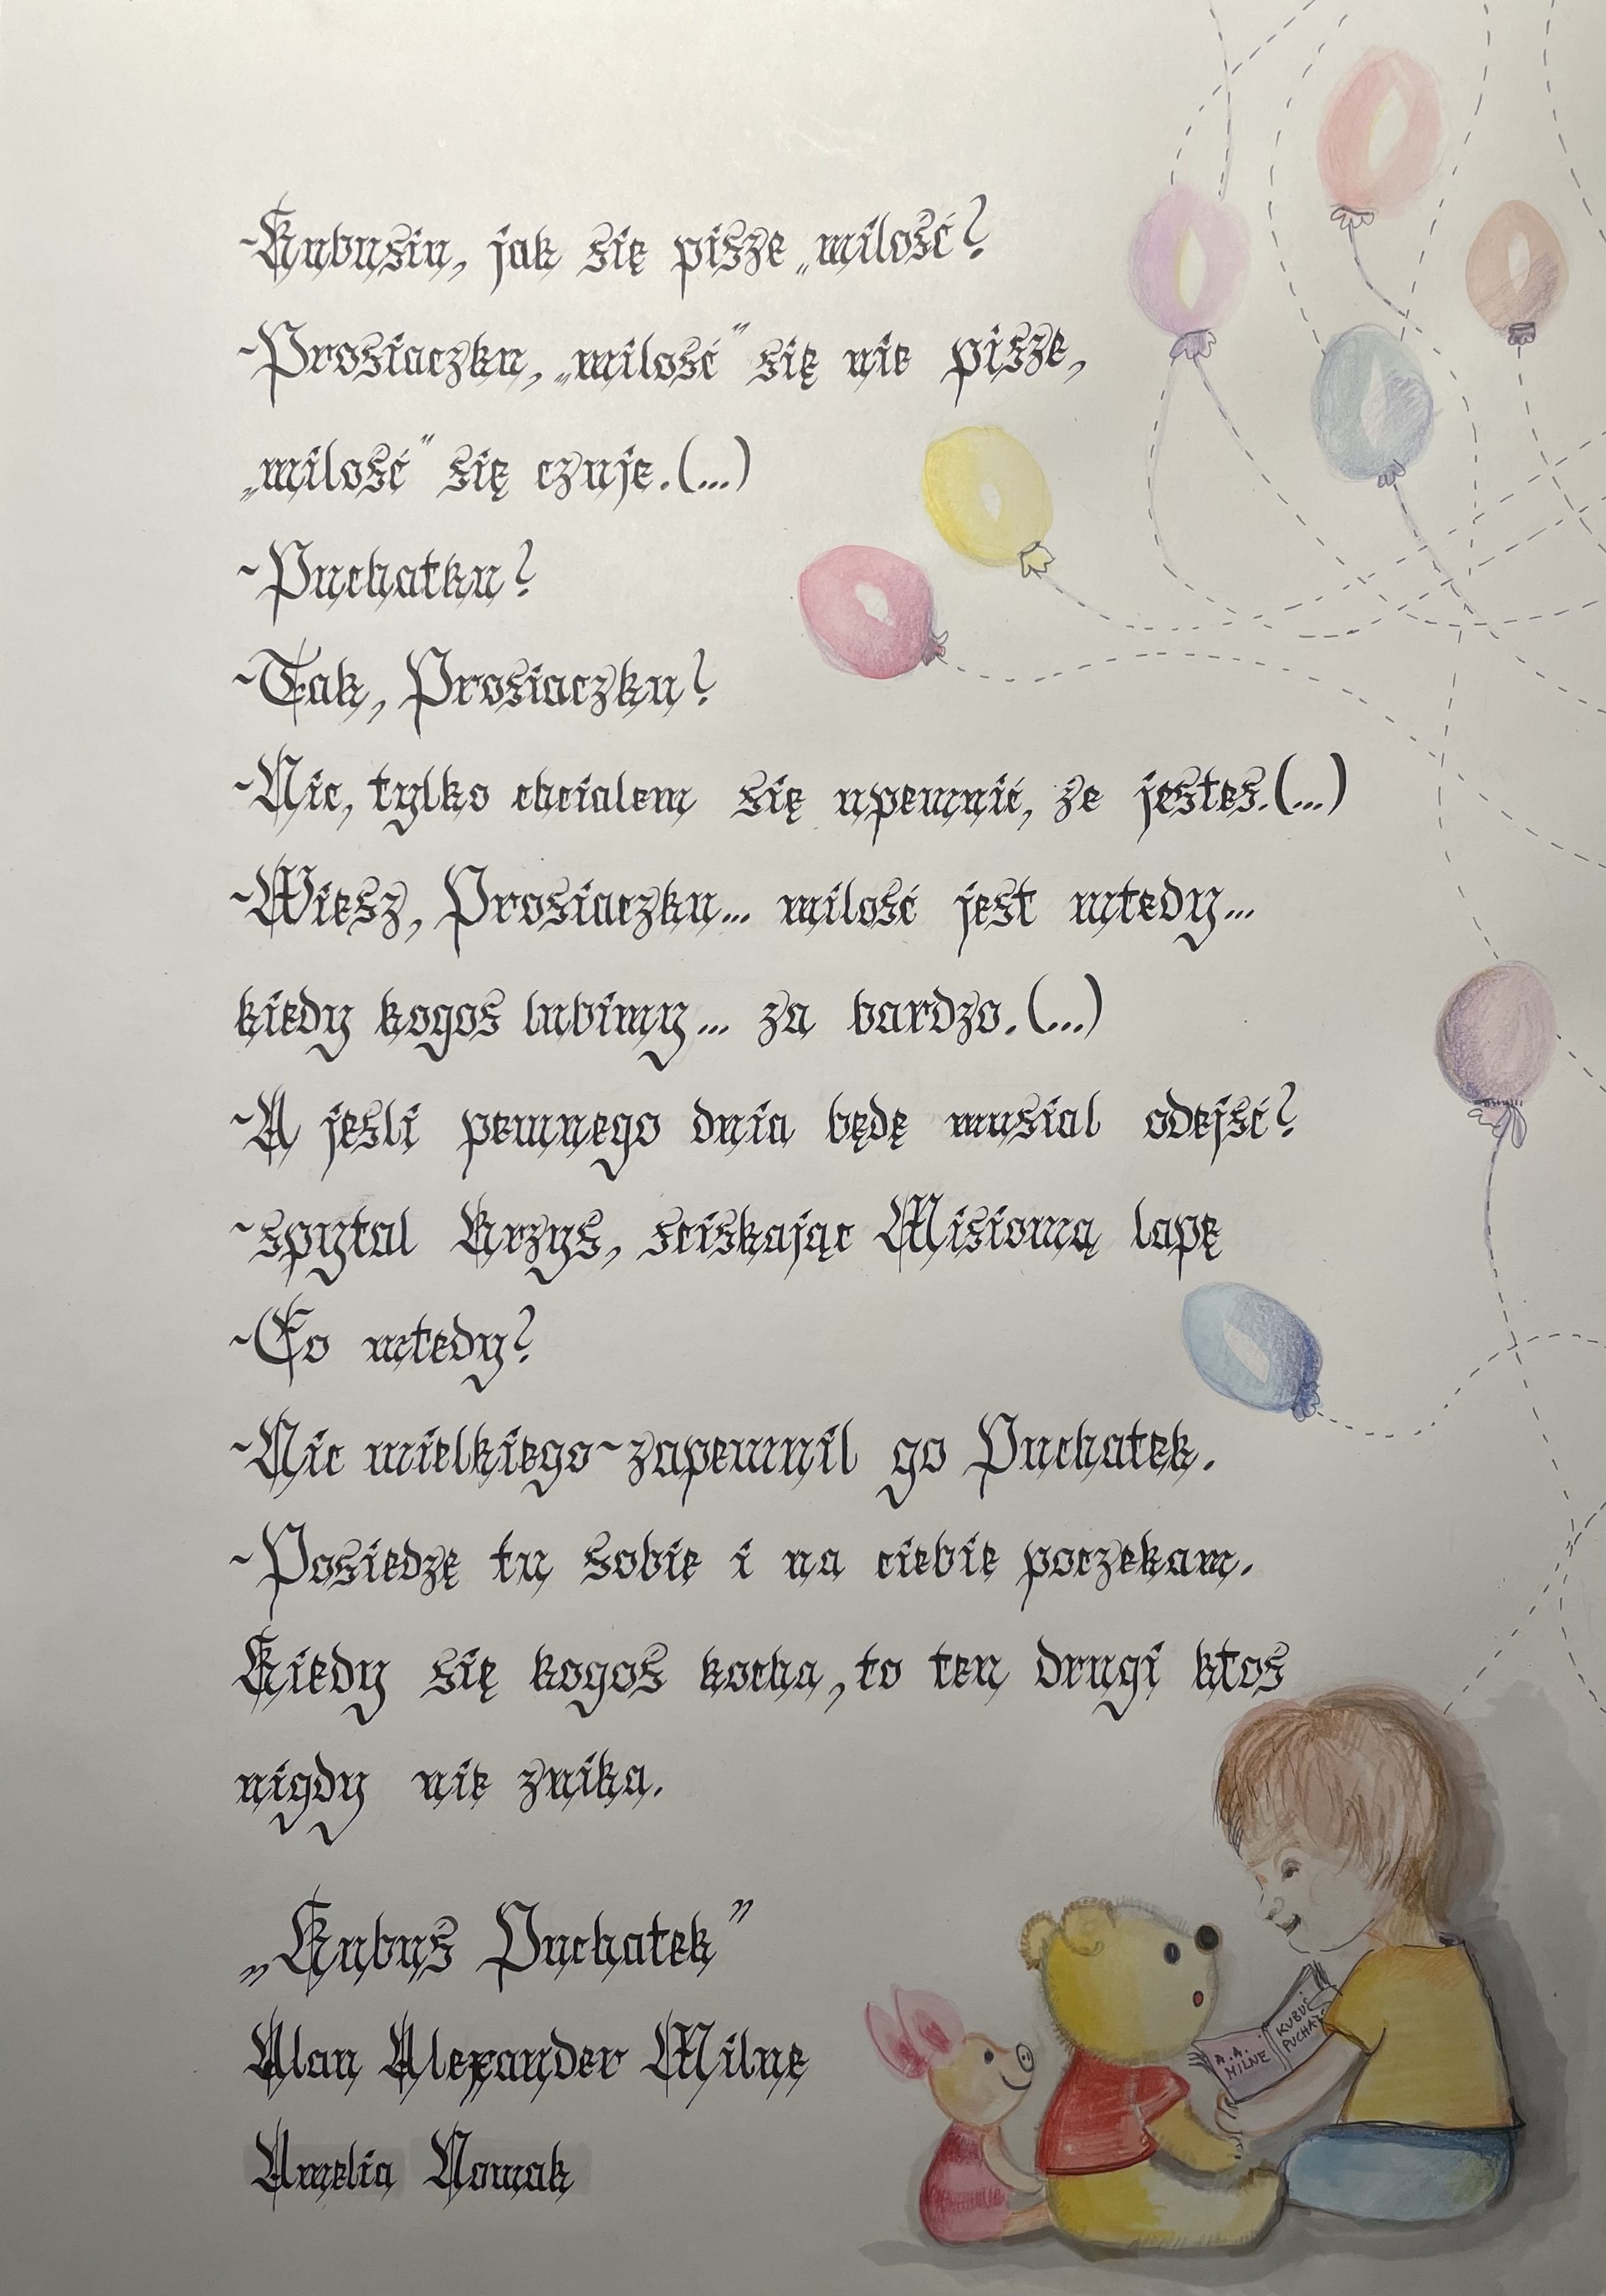 ~Kubusiu, jak się pisze „milość?
~Prosiaczku, „milość” się nie pisze,
„milość” się czuje.(...)
~Puchatku?
~Tak, Prosiaczku?
~Nic, tylko chcialem się upewnić, że jestes.(...)
~Wiesz, Prosiaczku... milość jest wtedy...
kiedy kogos lubimy... za bardzo.(...)
~A jesli pewnego dnia będę musial odejść?
~spytal Krzys, sciskając Misiową lapę
~Co wtedy?
~Nic wielkiego~zapewnil go Puchatek.
~Posiedzę tu sobie i na ciebie poczekam.
Kiedy się kogos kocha, to ten drugi ktos
nigdy nie znika.
„Kubus Puchatek”
Alan Alexander Milne
Amelia Nowak
A.A.
MILNE
KUBUŚ